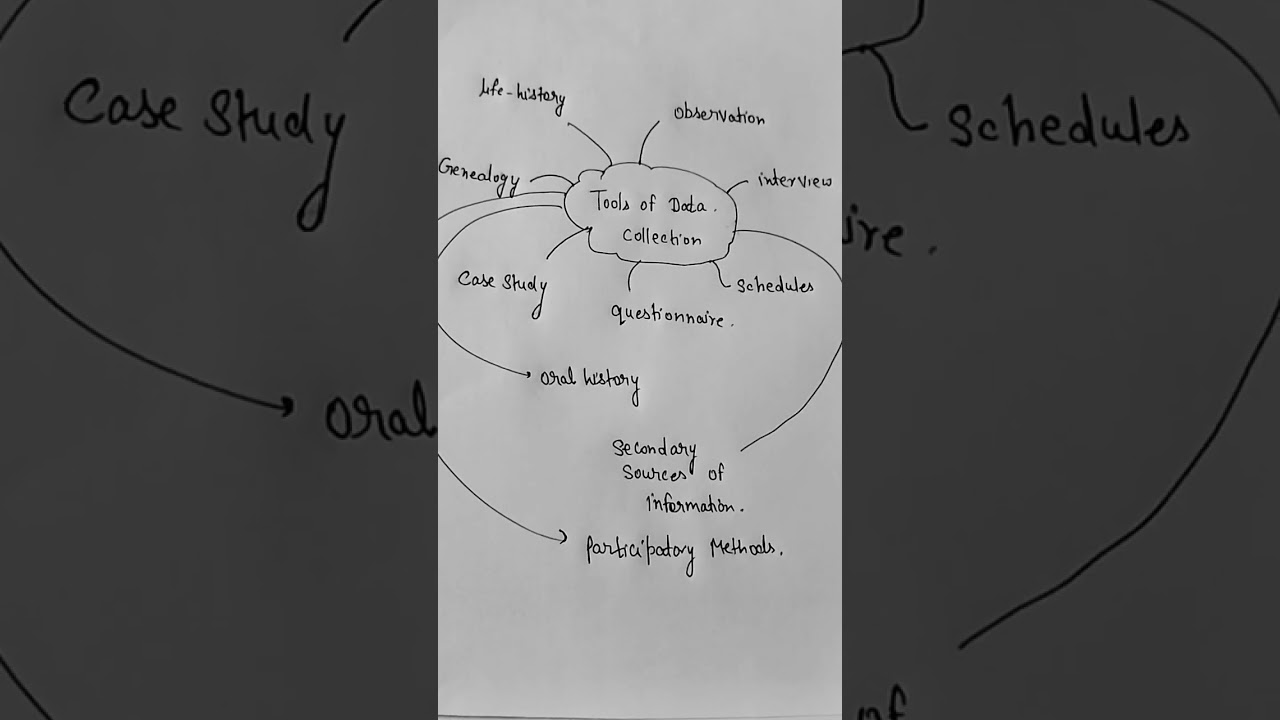 life-history
observation
Genealogy
interview
Tools of Data.
Collection
Case Study
Schedules
questionnaire.
oral history
Secondary
Sources of
information.
participatory Methods.
Case Study
Schedules
ire.
oral
of